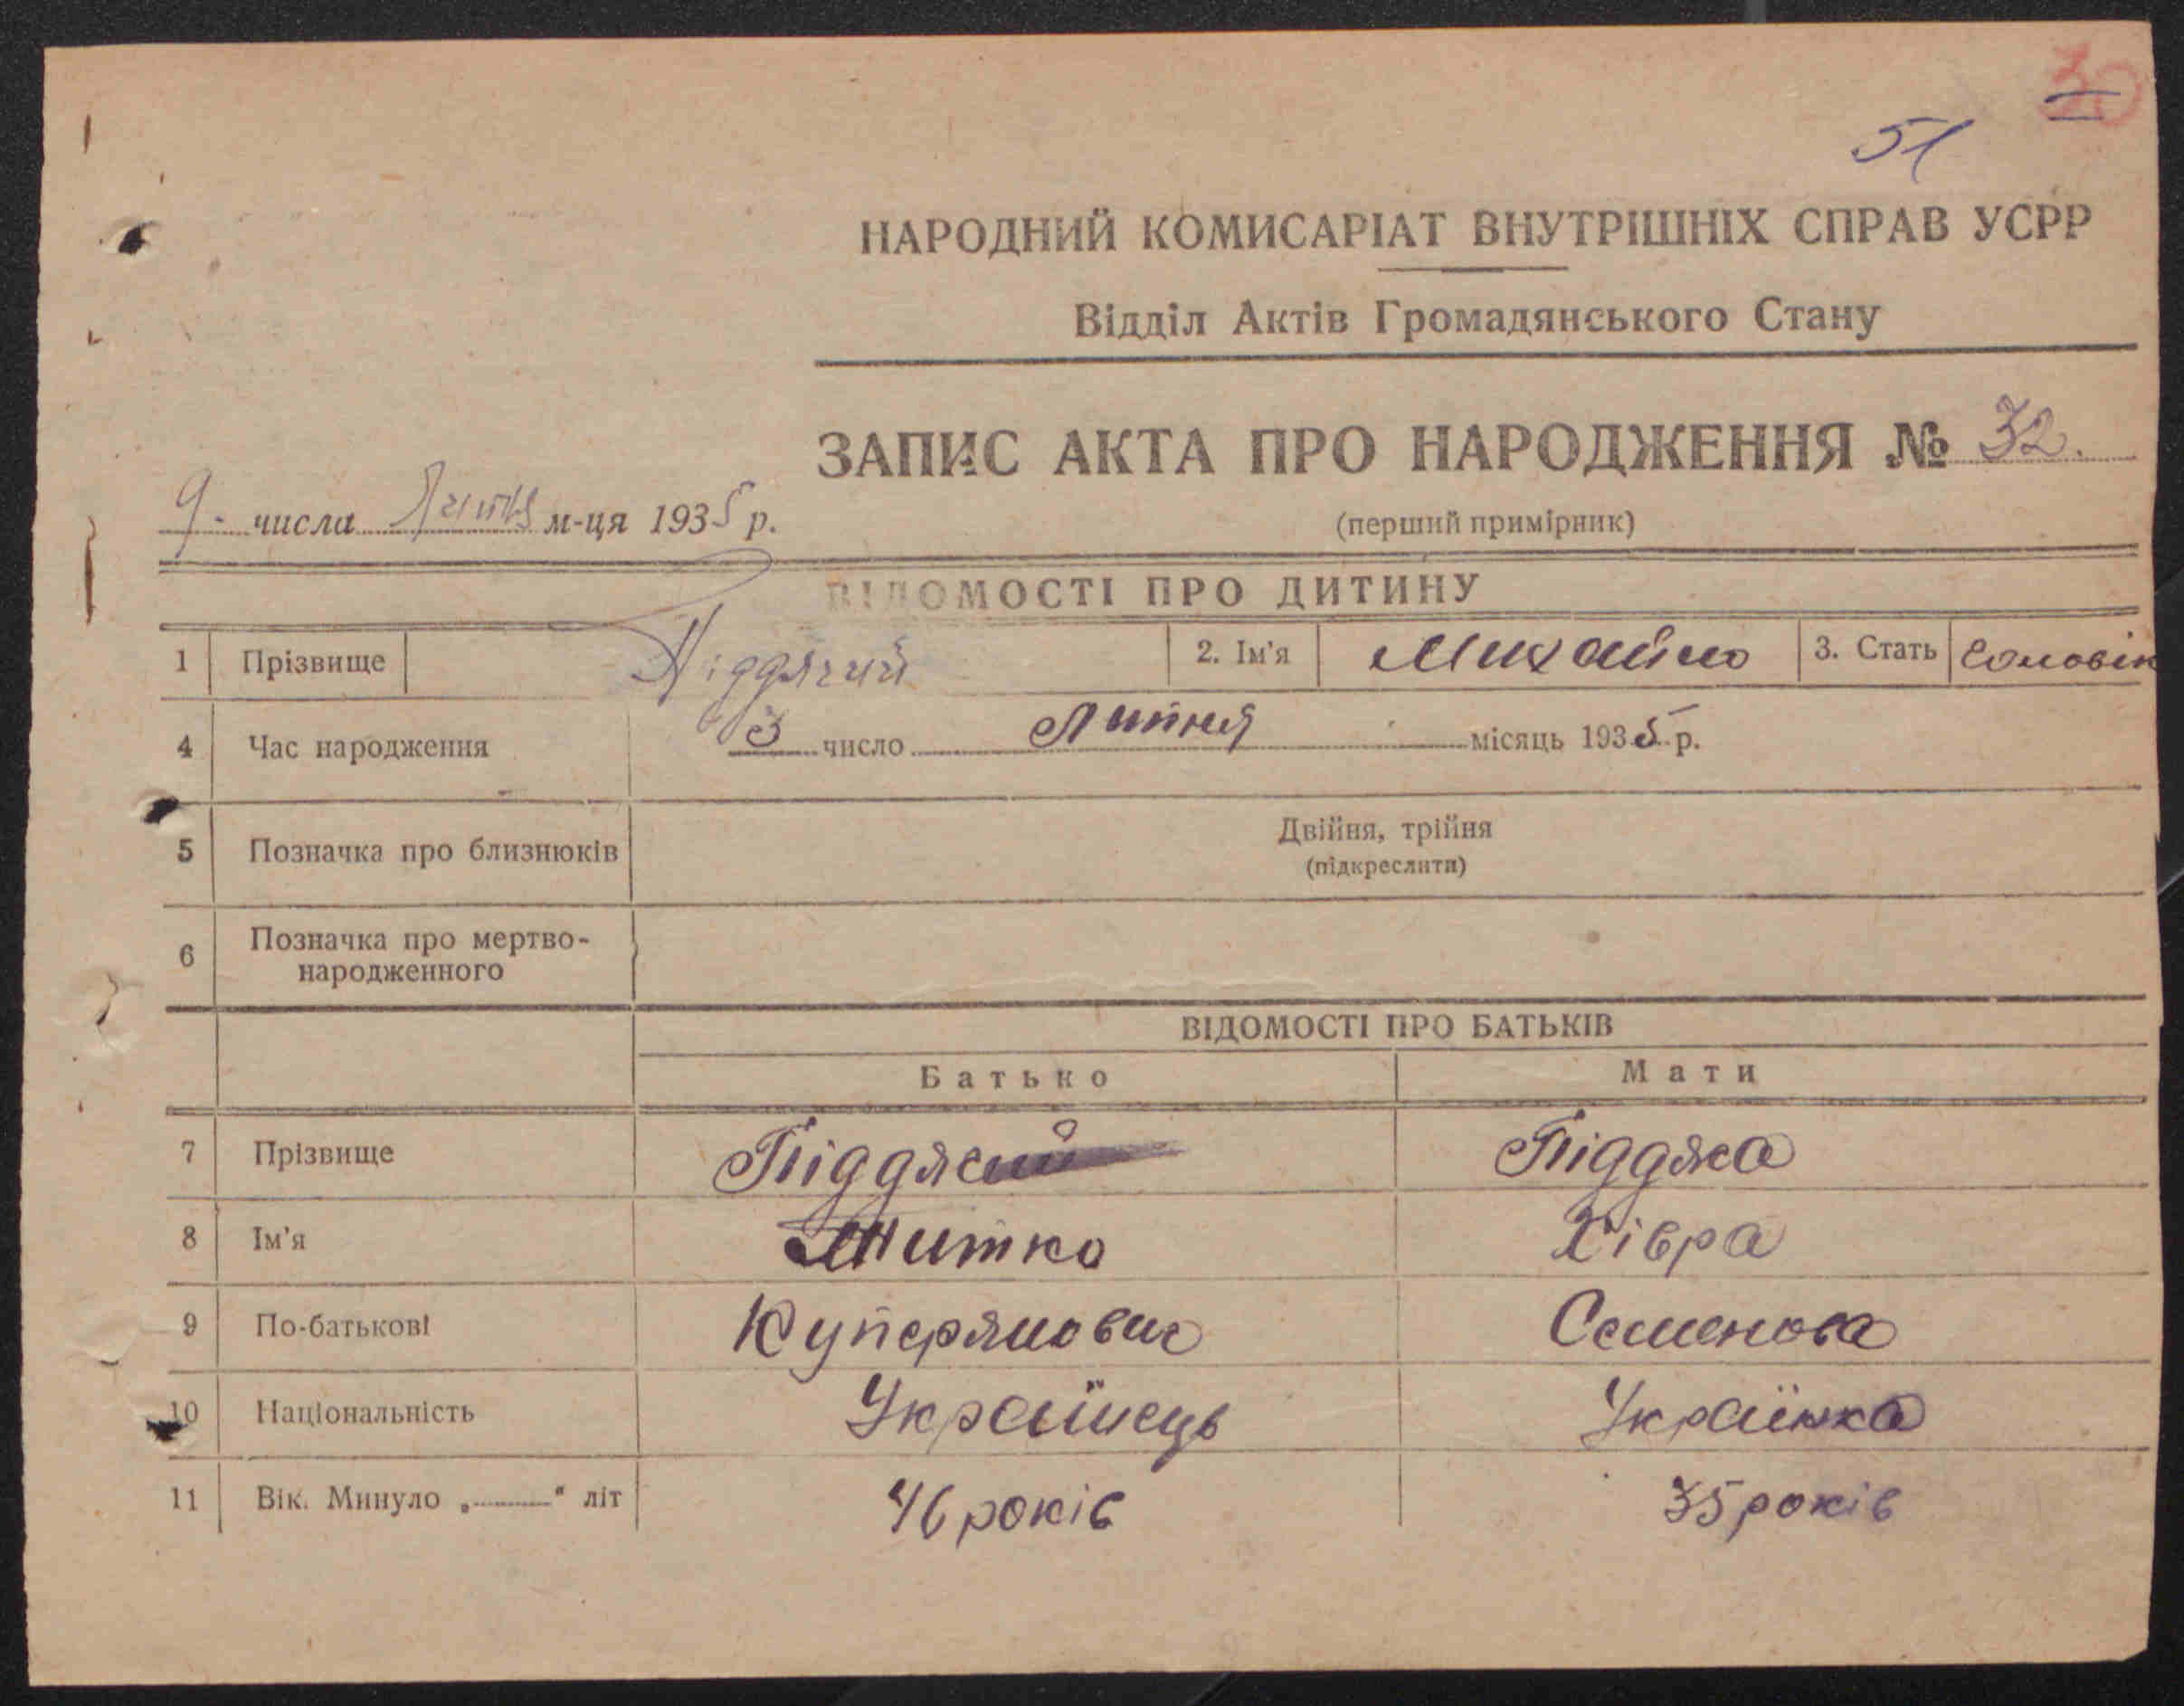 30
51
НАРОДНИЙ КОМИСАРІАТ ВНУТРІШНІХ СПРАВ УСРР
Відділ Актів Громадянського Стану
ЗАПИС АКТА ПРО НАРОДЖЕННЯ № 32.
9. числа Липня м-ця 1935 р.
(перший примірник)
ВІДОМОСТІ ПРО ДИТИНУ
1 Прізвище Піддячий 2. Ім'я Михайло 3. Стать Чоловік
4 Час народження 3 число Липня місяць 1935 р.
5 Позначка про близнюків Двійня, трійня
(підкреслити)
6 Позначка про мертво-
народженного
ВІДОМОСТІ ПРО БАТЬКІВ
Батько Мати
7 Прізвище Піддячий Піддяча
8 Ім'я Митко Хівра
9 По-батькові Купєрянович Семенова
10 Національність Українець Українка
11 Вік. Минуло „ “ літ 46 років 35 років